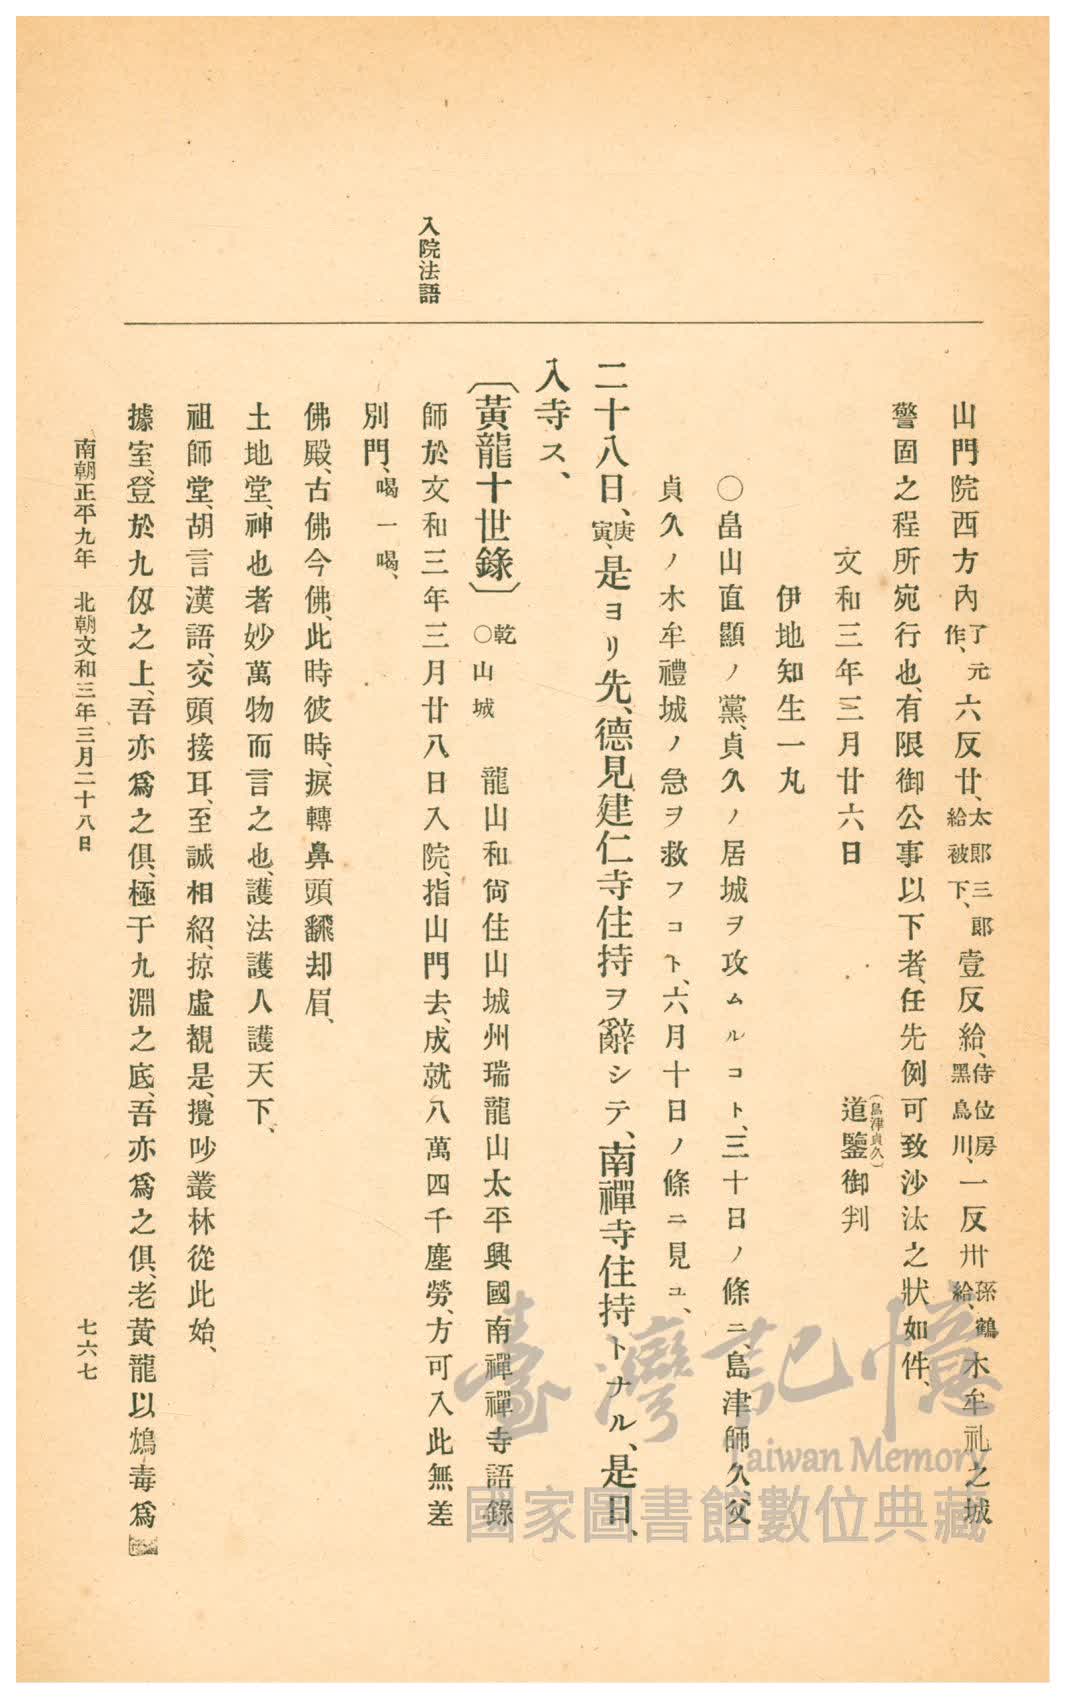 入院法語
山門院西方內了元作、六反廿、太郎三郎給被下、壹反給、侍位房黑烏川、一反卅孫鶴給、木牟礼之城
警固之程所宛行也、有限御公事以下者、任先例可致沙汰之狀如件、
文和三年三月廿六日 道鑒御判
(島津貞久)
伊地知生一丸
〇畠山直顯ノ黨、貞久ノ居城ヲ攻ムルコト、三十日ノ條ニ、島津師久、父
貞久ノ木牟禮城ノ急ヲ救フコト、六月十日ノ條ニ見ユ、
二十八日、庚寅、是ヨリ先、德見建仁寺住持ヲ辭シテ、南禪寺住持トナル、是日、
入寺ス、
〔黃龍十世錄〕乾〇山城 龍山和尙住山城州瑞龍山太平興國南禪禪寺語錄
師於文和三年三月廿八日入院、指山門去、成就八萬四千塵勞、方可入此無差
別門、喝一喝、
佛殿、古佛今佛、此時彼時、捩轉鼻頭飜却眉、
土地堂、神也者妙萬物而言之也、護法護人護天下、
祖師堂、胡言漢語、交頭接耳、至誠相紹、掠虛覩是、攪吵叢林從此始、
據室、登於九仭之上、吾亦爲之俱、極于九淵之底、吾亦爲之俱、老黃龍以鴆毒爲
南朝正平九年 北朝文和三年三月二十八日
七六七
臺灣記憶
Taiwan Memory
國家圖書館數位典藏